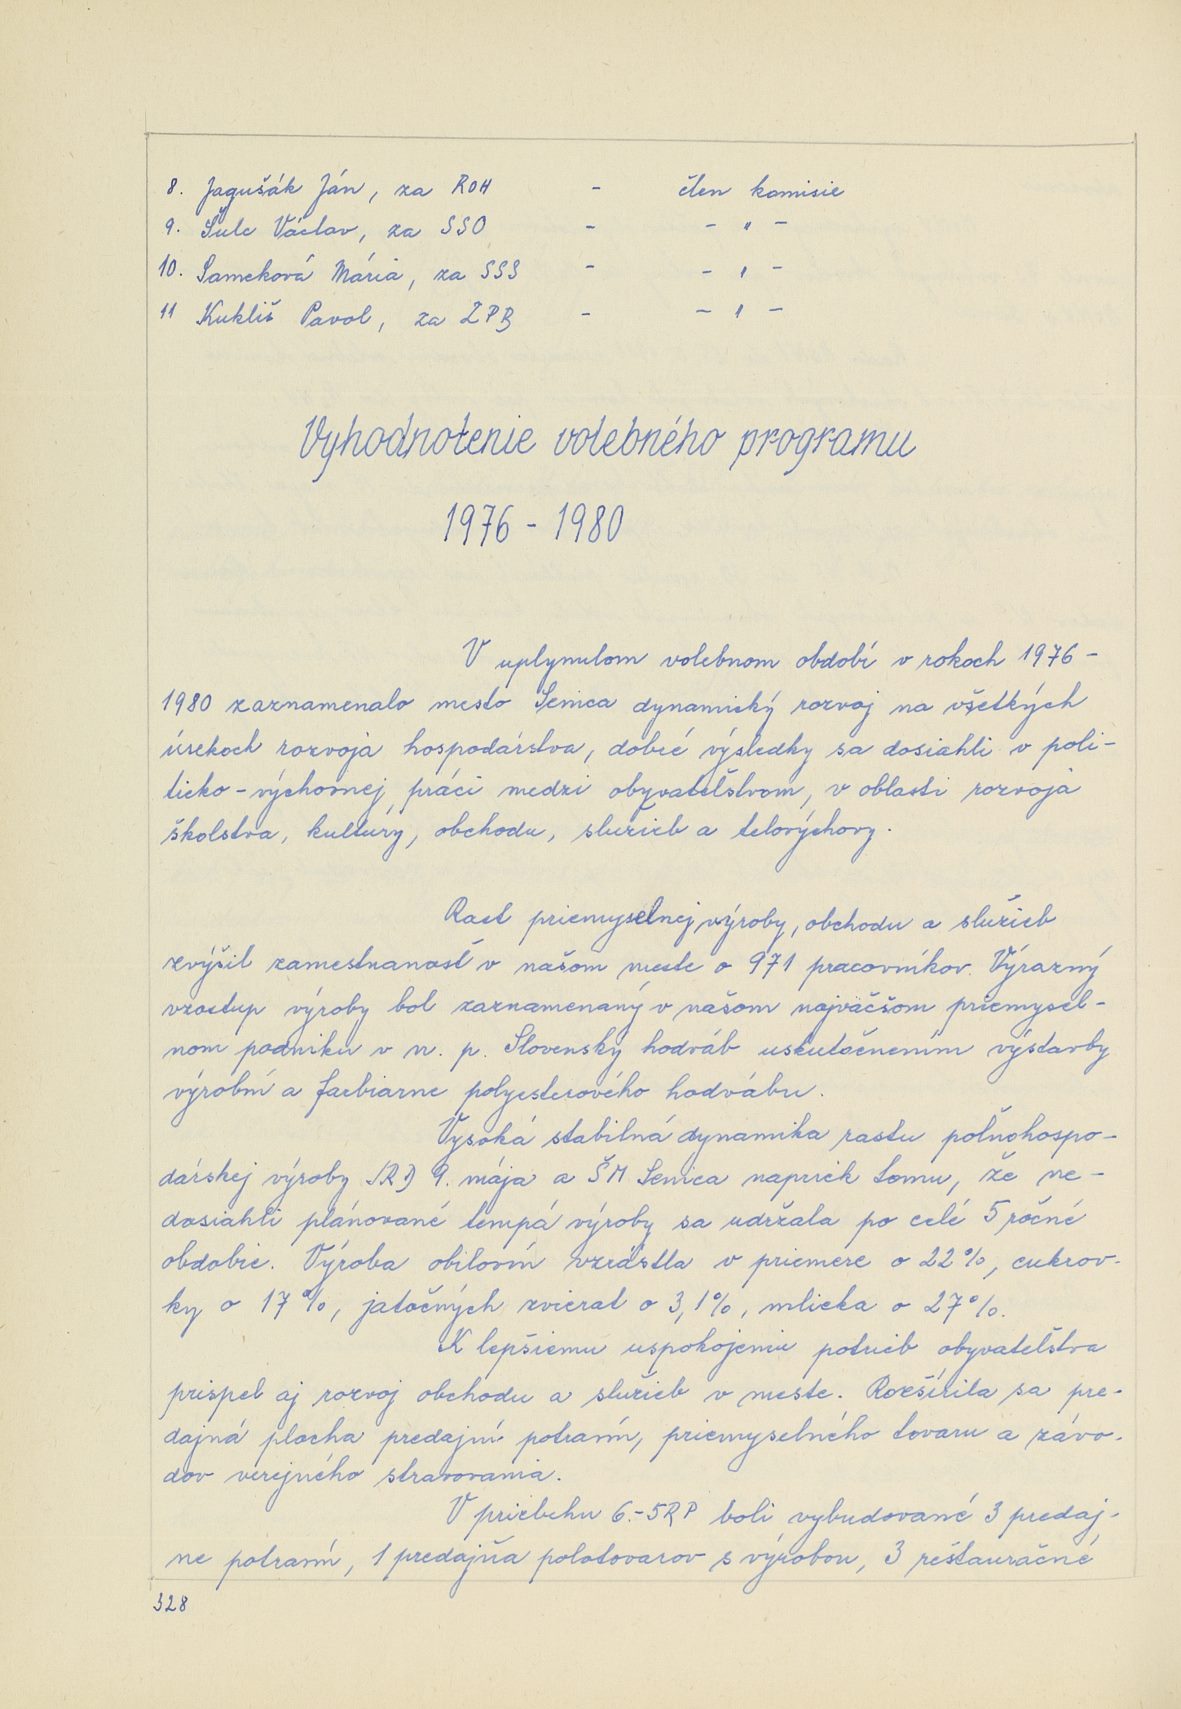 8. Jagušák Ján, za ROH - člen komisie
9. Šulc Václav, za SSO - - " -
10. Sameková Mária, za SSS - - " -
11 Kukliš Pavol, za ZPB - - " -
Vyhodnotenie volebného programu
1976 - 1980
V uplynulom volebnom období v rokoch 1976 -
1980 zaznamenalo mesto Senica dynamický rozvoj na všetkých
úsekoch rozvoja hospodárstva, dobré výsledky sa dosiahli v poli-
ticko - výchovnej práci medzi obyvateľstvom, v oblasti rozvoja
školstva, kultúry, obchodu, služieb a telovýchovy.
Rast priemyselnej výroby, obchodu a služieb
zvýšil zamestnanosť v našom meste o 971 pracovníkov. Výrazný
vzostup výroby bol zaznamenaný v našom najväčšom priemysel-
nom podniku v n. p. Slovenský hodváb uskutočnením výstavby
výrobní a farbiarne polyesterového hodvábu.
Vysoká stabilná dynamika rastu poľnohospo-
dárskej výroby JRD 9. mája a ŠM Senica napriek tomu, že ne-
dosiahli plánované tempá výroby sa udržala po celé 5 ročné
obdobie. Výroba obilovín vzrástla v priemere o 22%, cukrov-
ky o 17%, jatočných zvierat o 3,1%, mlieka o 27%.
K lepšiemu uspokojeniu potrieb obyvateľstva
prispel aj rozvoj obchodu a služieb v meste. Rozšírila sa pre-
dajná plocha predajní potravín, priemyselného tovaru a závo-
dov verejného stravovania.
V priebehu 6.-5RP boli vybudované 3 predaj-
ne potravín, 1 predajňa polotovarov s výrobou, 3 reštauračné
328